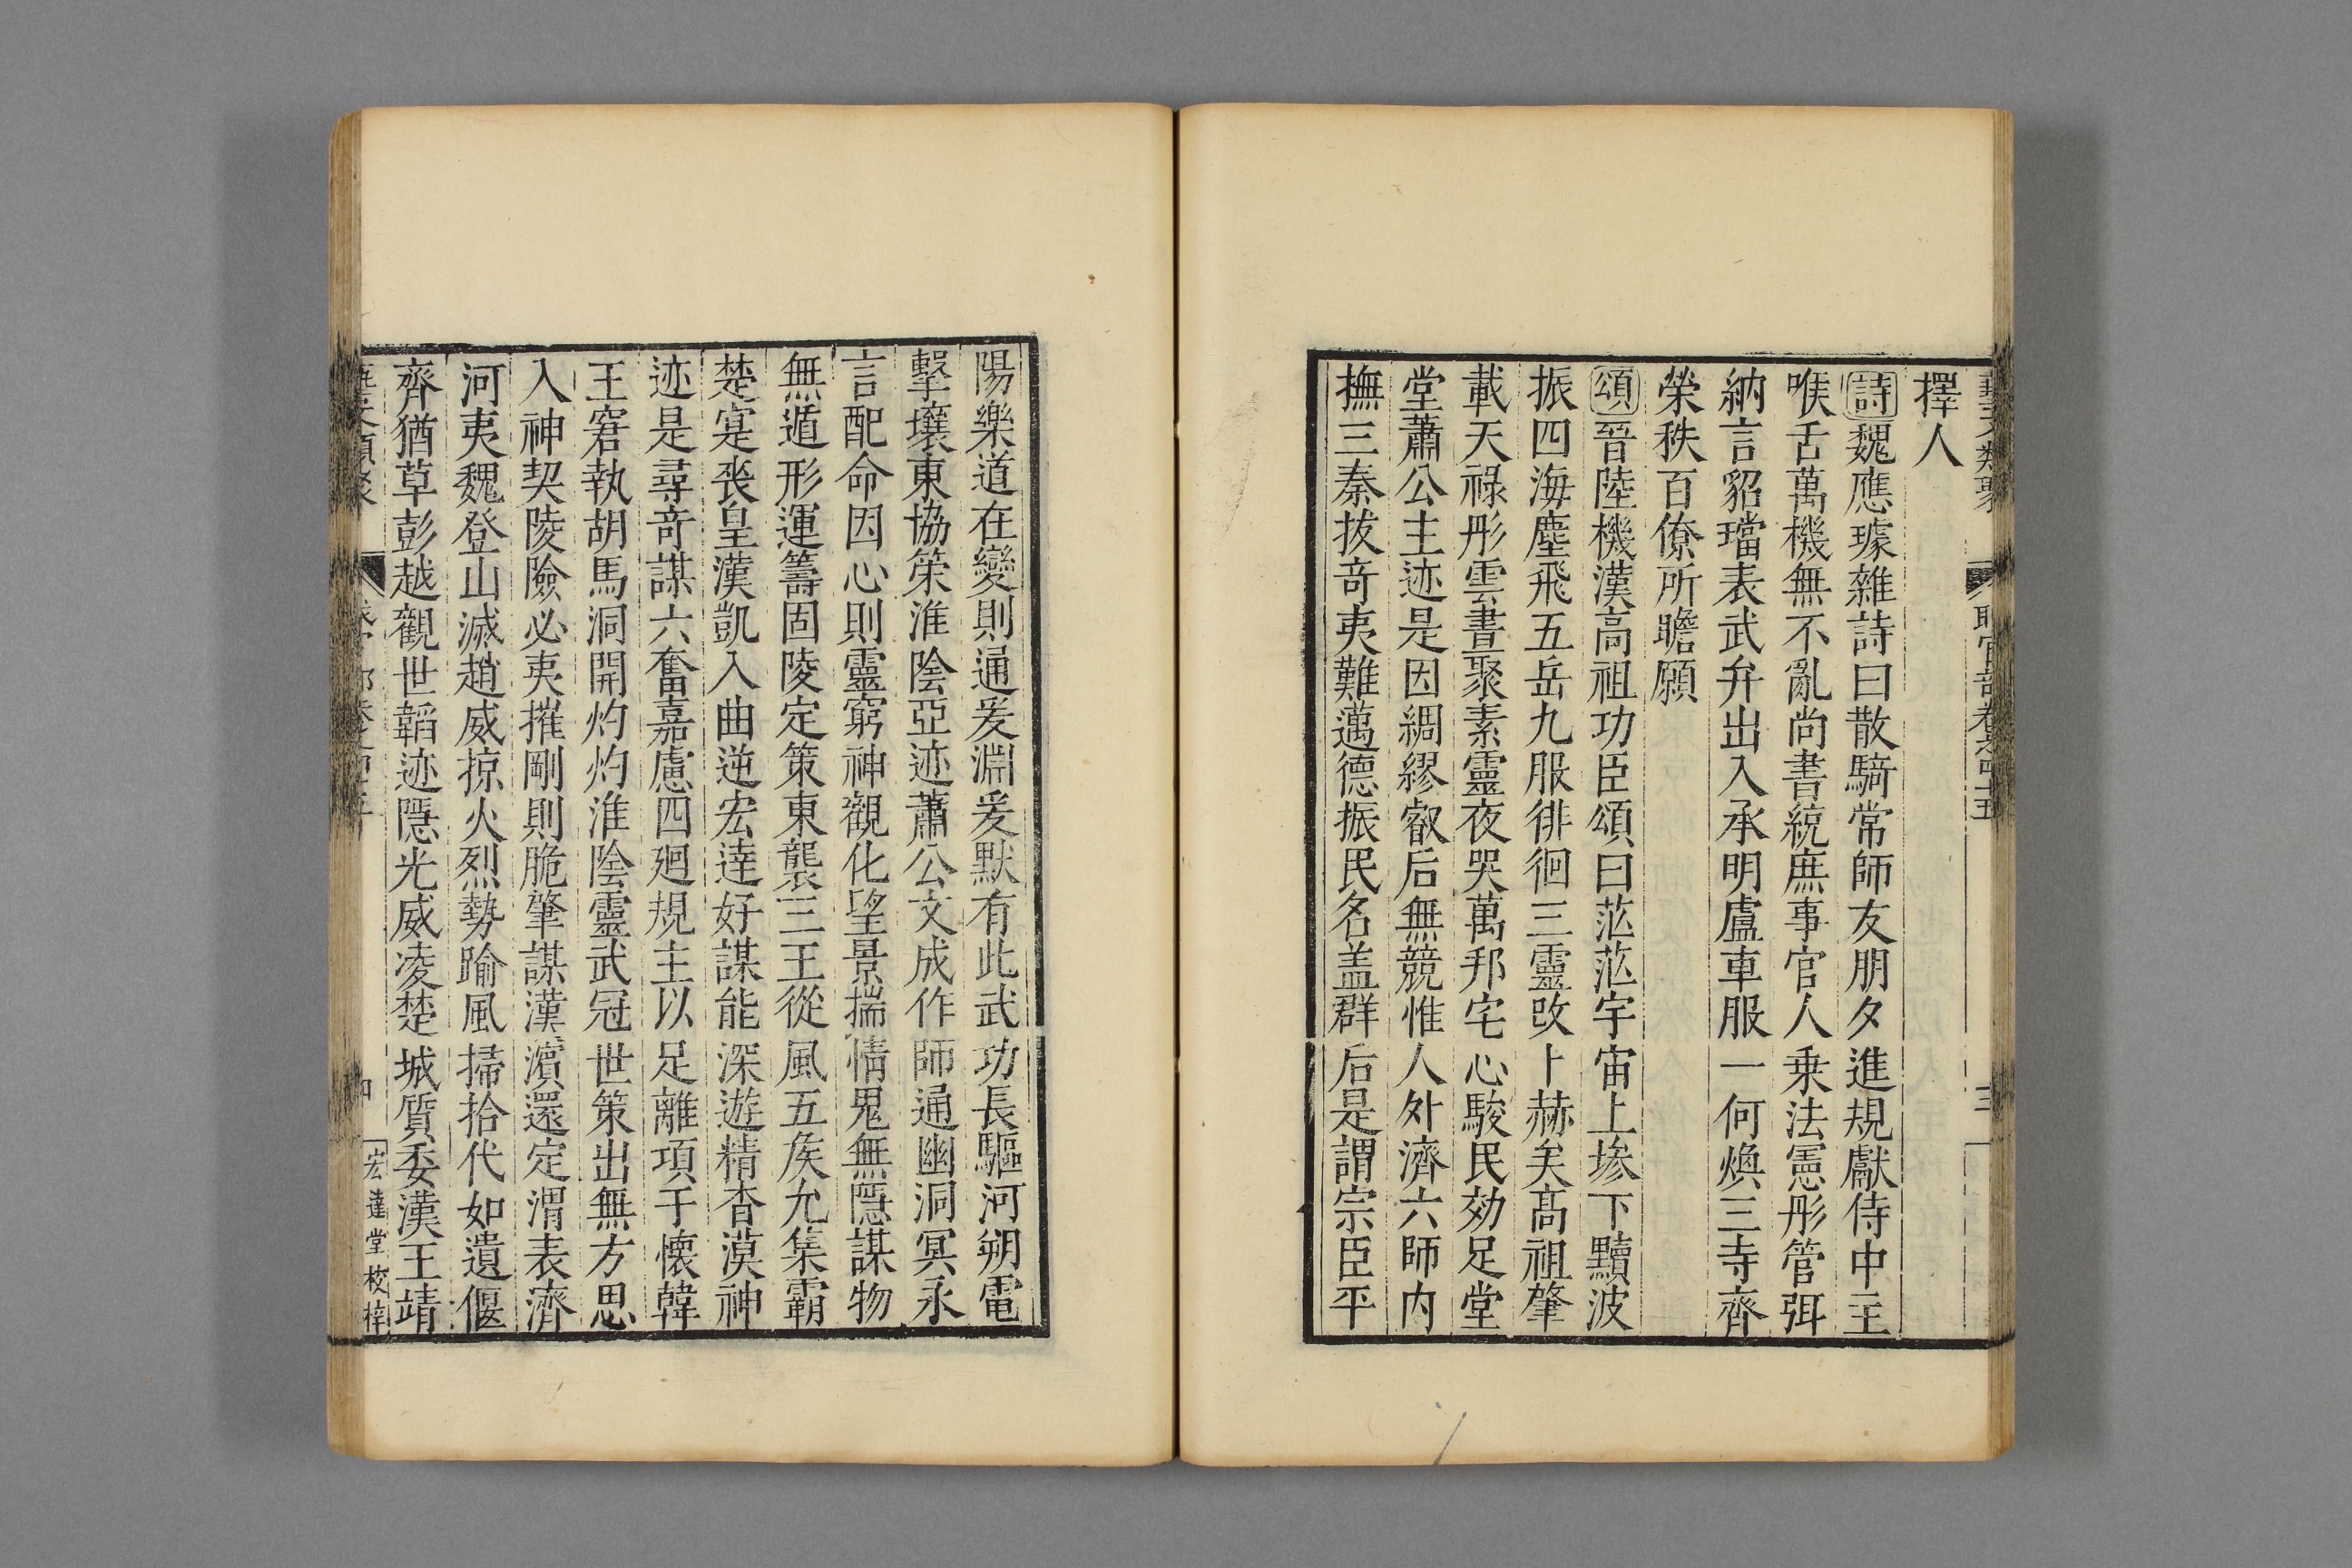 擇人
詩魏應璩雜詩曰散騎常師友朋夕進規獻侍中主
喉舌萬機無不亂尚書統庶事官人乗法憲彤管弭
納言貂璫表武弁出入承明廬車服一何煥三寺齊
榮秩百僚所瞻願
頌晉陸機漢高祖功臣頌曰茫茫宇宙上墋下黷波
振四海塵飛五岳九服徘徊三靈攺卜赫矣髙祖肇
載天祿彤雲晝聚素靈夜哭萬邦宅心駿民効足堂
堂蕭公主迹是因綢繆叡后無競惟人外濟六師内
撫三秦拔竒夷難邁德振民名盖群后是謂宗臣平
陽樂道在變則通爰淵爰默有此武功長驅河朔電
擊壤東協策淮陰亞迹蕭公文成作師通幽洞冥永
言配命因心則靈窮神觀化望景揣情鬼無隱謀物
無遁形運籌固陵定策東襲三王從風五矦允集霸
楚寔喪皇漢凱入曲逆宏逹好謀能深遊精杳漠神
迹是尋竒謀六奮嘉慮四廻規主以足離項于懐韓
王窘執胡馬洞開灼灼淮陰靈武冠世策出無方思
入神契陵險必夷摧剛則脆肇謀漢濱還定渭表濟
河夷魏登山滅趙威掠火烈勢踰風掃拾代如遺偃
齊猶草彭越觀世韜迹隱光威凌楚城質委漢王靖
宏達堂校梓